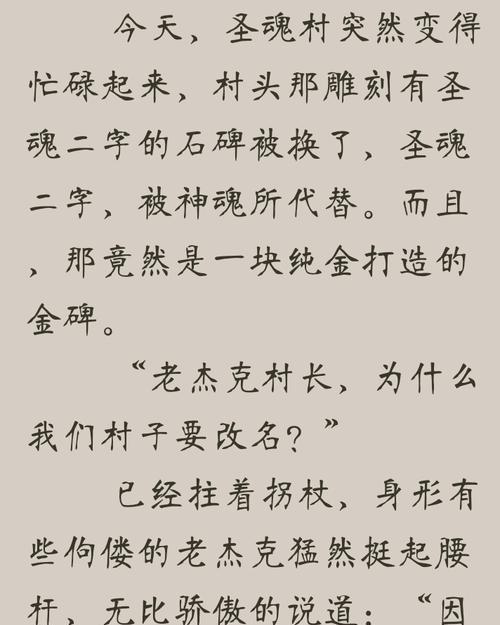 今天，圣魂村突然变得
忙碌起来，村头那雕刻有圣
魂二字的石碑被换了，圣魂
二字，被神魂所代替。而且
，那竟然是一块纯金打造的
金碑。
“老杰克村长，为什么
我们村子要改名？”
已经拄着拐杖，身形有
些佝偻的老杰克猛然挺起腰
杆，无比骄傲的说道：“因